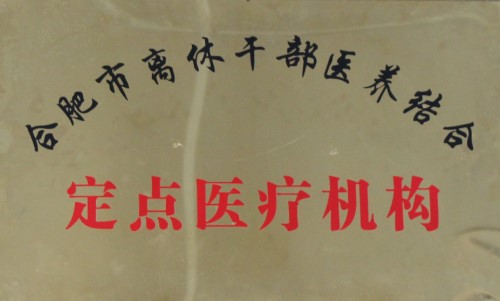 合肥市离休干部医养结合
定点医疗机构